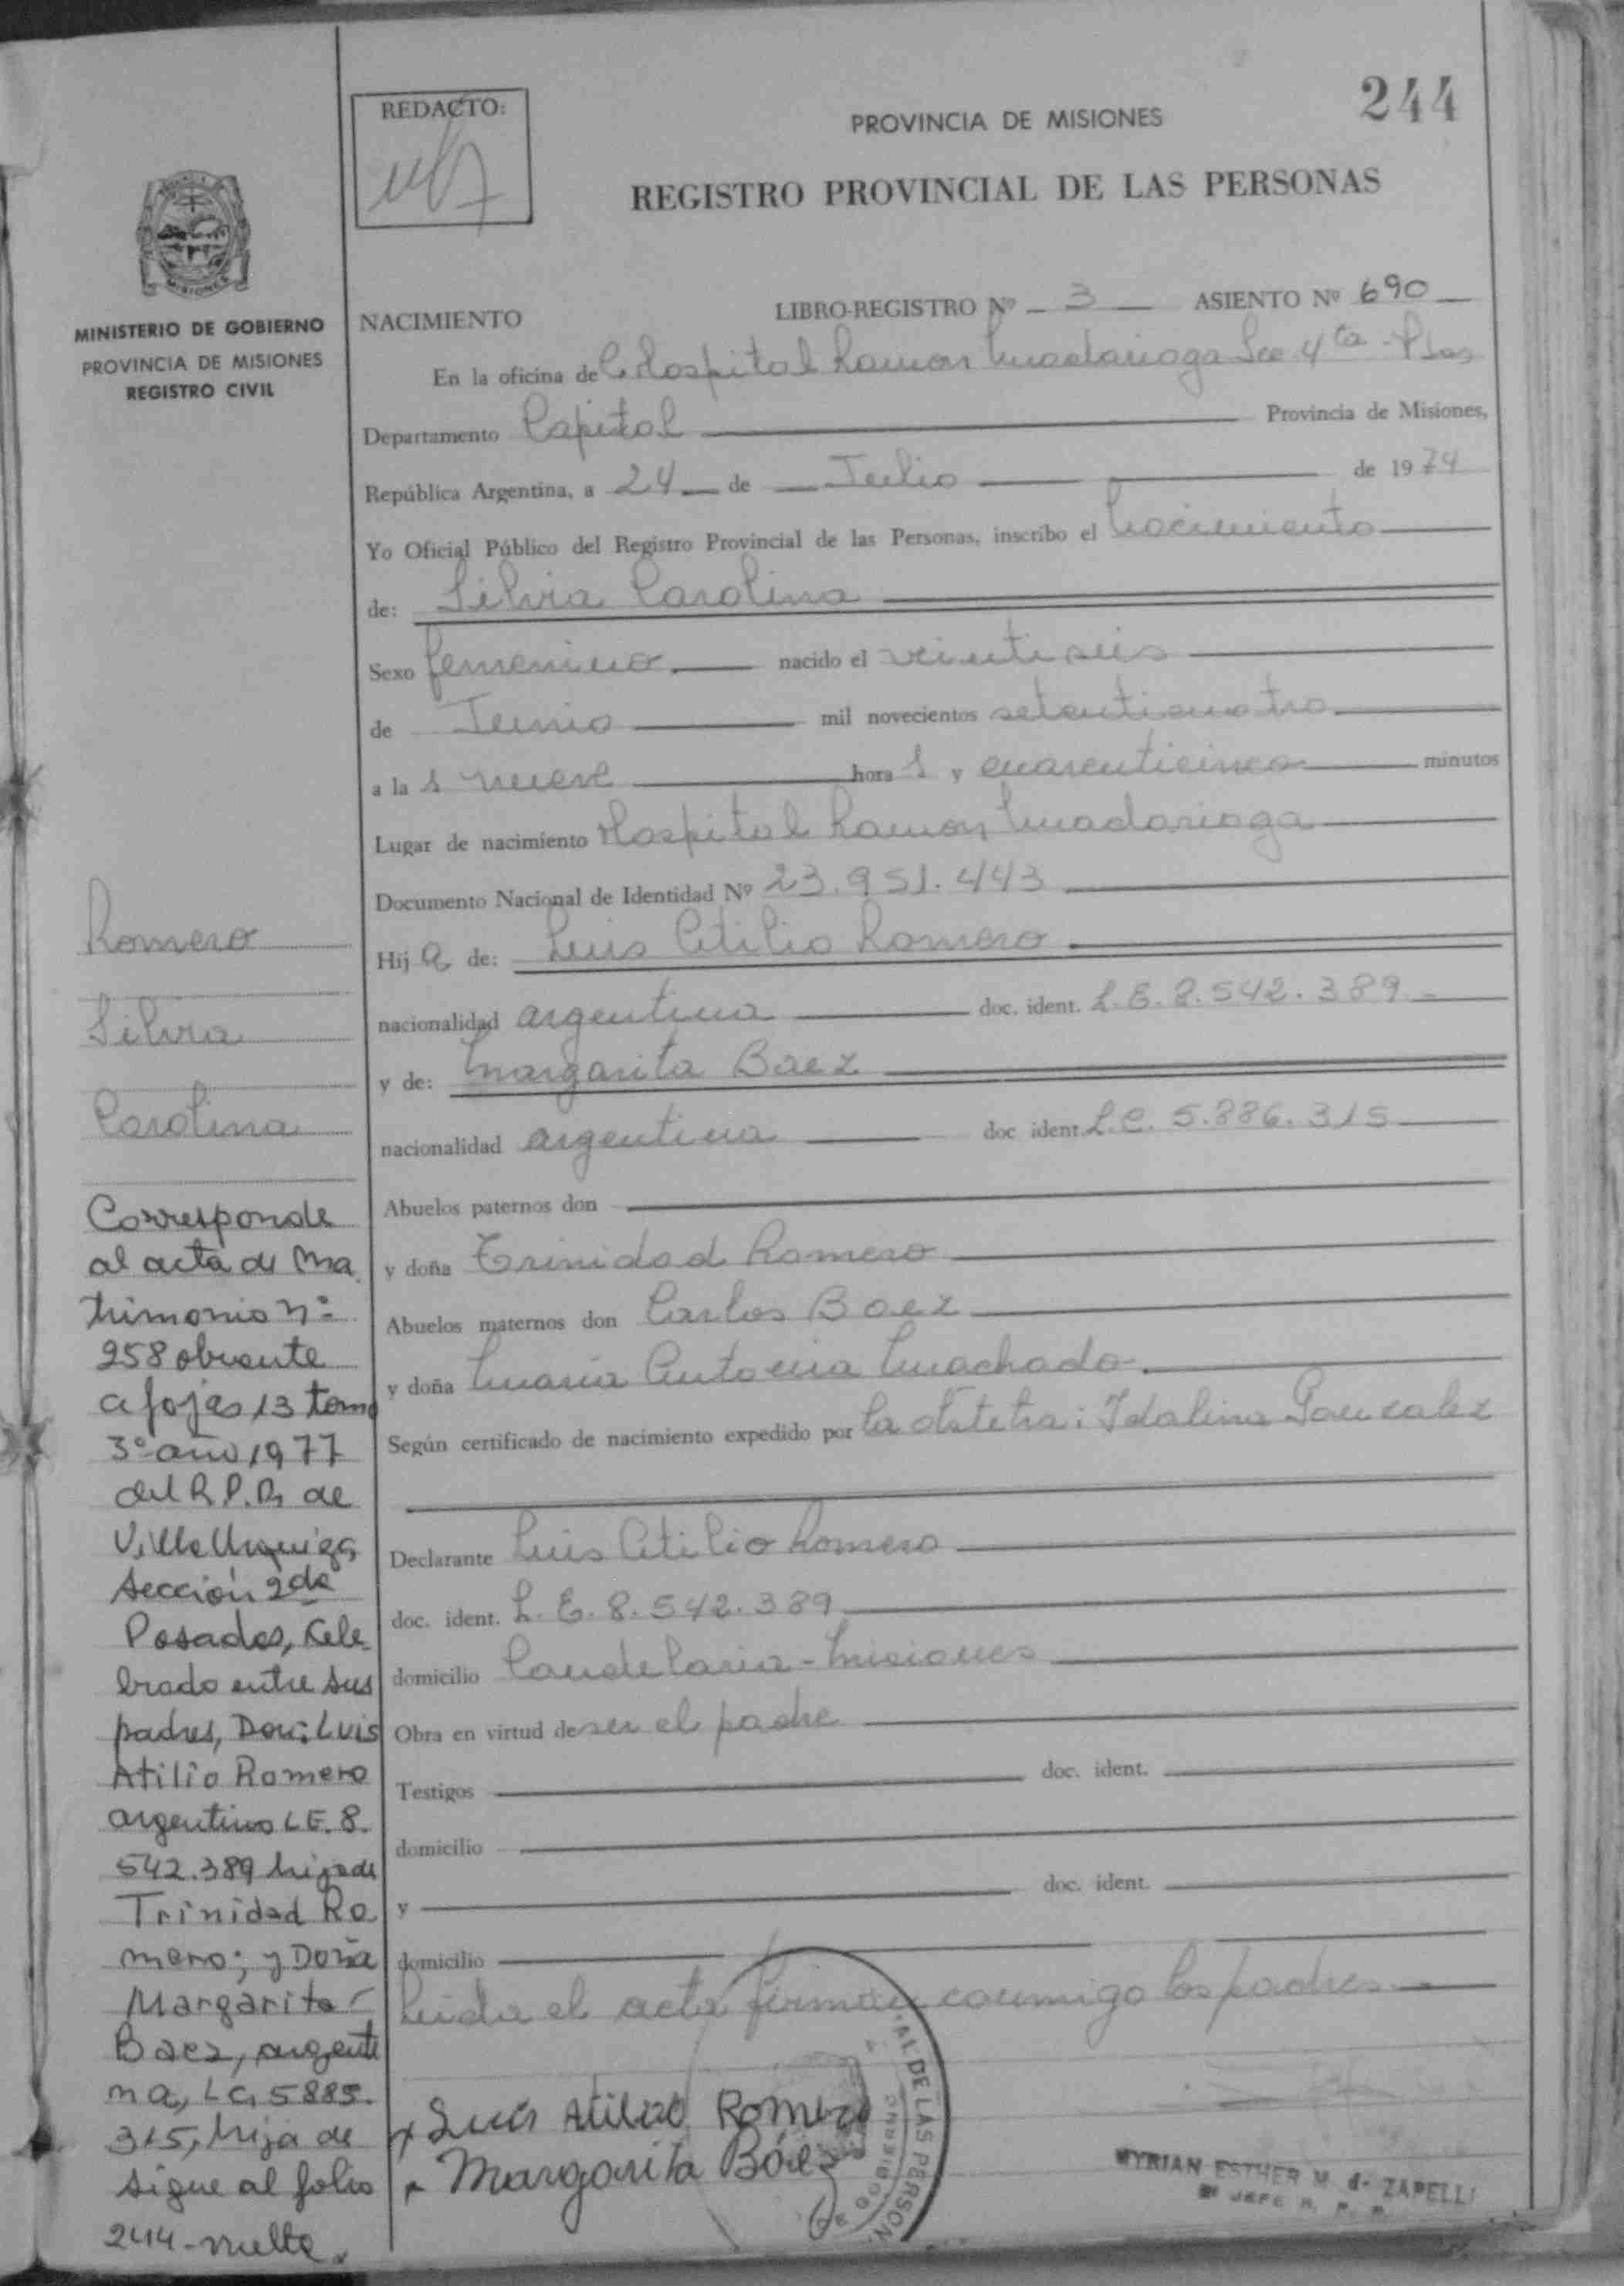 244
REDACTO:
PROVINCIA DE MISIONES
REGISTRO PROVINCIAL DE LAS PERSONAS
MISIONES
MINISTERIO DE GOBIERNO
PROVINCIA DE MISIONES
REGISTRO CIVIL
NACIMIENTO LIBRO-REGISTRO Nº 3 ASIENTO Nº 690
En la oficina de Hospital Ramon Madariaga Sec 4ta - Pdas
Departamento Capital Provincia de Misiones,
República Argentina, a 24 de Julio de 1974
Yo Oficial Público del Registro Provincial de las Personas, inscribo el Nacimiento
de: Silvia Carolina
Sexo femenino nacido el veintiseis
de Junio mil novecientos setenticuatro
a la s nueve hora s y cuarenticinco minutos
Lugar de nacimiento Hospital Ramon Madariaga
Documento Nacional de Identidad Nº 23.951.443
Hij a de: Luis Atilio Romero
nacionalidad argentina doc. ident. L.E. 8.542.389
y de: Margarita Baez
nacionalidad argentina doc ident L.C. 5.886.315
Abuelos paternos don
y doña Trinidad Romero
Abuelos maternos don Carlos Baez
y doña Maria Antonia Machado
Según certificado de nacimiento expedido por la obstetra: Idalina Gonzalez
Declarante Luis Atilio Romero
doc. ident. L.E. 8.542.389
domicilio Candelaria - Misiones
Obra en virtud de ser el padre
Testigos doc. ident.
domicilio
y doc. ident.
domicilio
Leida el acta firman conmigo los padres
Luis Atilio Romero
Margarita Báez
AL DE LAS PERSON
GOBIERNO
MYRIAN ESTHER M. de ZAPELLI
JEFE R. P. P.
Romero
Silvia
Carolina
Corresponde
al acta de Ma
trimonio nº
258 obrante
a fojas 13 tomo
3º año 1977
del R.P.P. de
Villa Urquiza
sección 2da
Posadas, cele
brado entre sus
padres, Don: Luis
Atilio Romero
argentino L.E. 8.
542.389 hijo de
Trinidad Ro
mero; y Doña
Margarita
Baez, argenti
na, L.C. 5885.
315, hija de
sigue al folio
244 - vuelta.